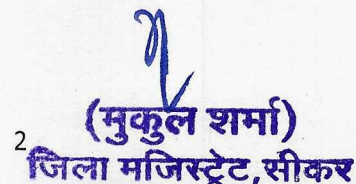 (मुकुल शर्मा)
2
जिला मजिस्ट्रेट,सीकर